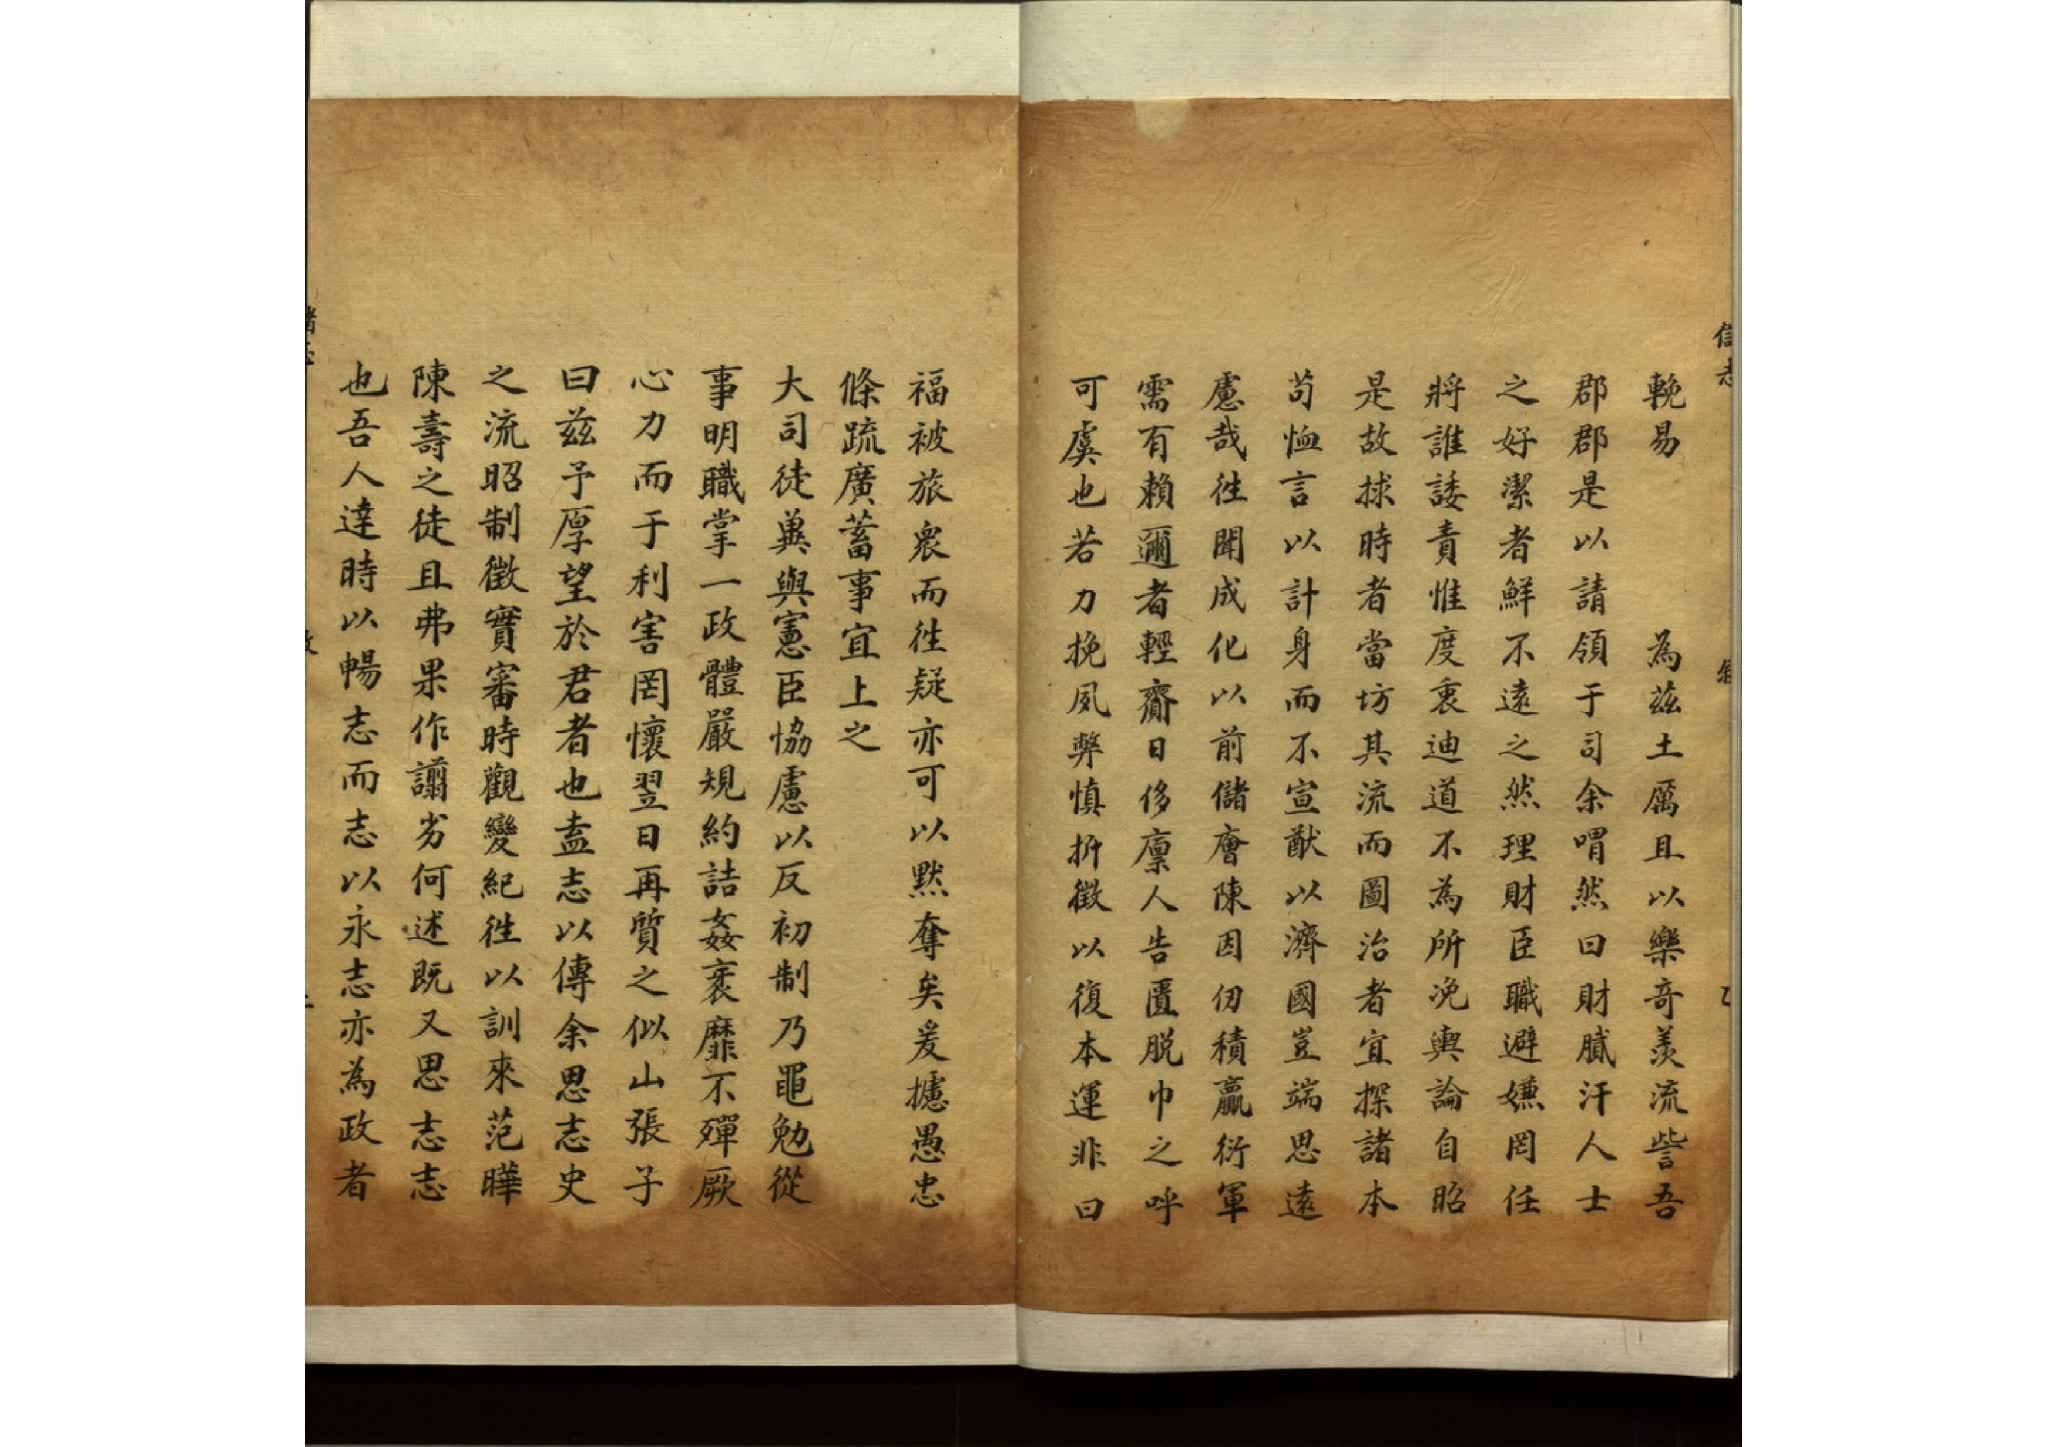 輓易　　　為茲土厲且以樂奇羨流訾吾
郡郡是以請領于司余喟然曰財膩汗人士
之好潔者鮮不遠之然理財臣職避嫌罔任
將誰諉責惟度衷迪道不為所浼輿論自昭
是故捄時者當坊其流而圖治者宜探諸本
苟恤言以計身而不宣猷以濟國豈端思遠
慮哉徃聞成化以前儲廥陳因仞積羸衍軍
需有賴邇者輕齎日侈廩人告匱脱巾之呼
可虞也若力挽夙弊慎折徵以復本運非曰
福被旅衆而徃疑亦可以默奪矣爰攄愚忠
條疏廣蓄事宜上之
大司徒兾與憲臣恊慮以反初制乃黽勉從
事明職掌一政體嚴規約詰姦袤靡不殫厥
心力而于利害罔懷翌日再質之似山張子
曰茲予厚望於君者也盍志以傳余思志史
之流昭制徵實審時觀變紀徃以訓來范曄
陳壽之徒且弗果作譾劣何述既又思志志
也吾人達時以暢志而志以永志亦為政者